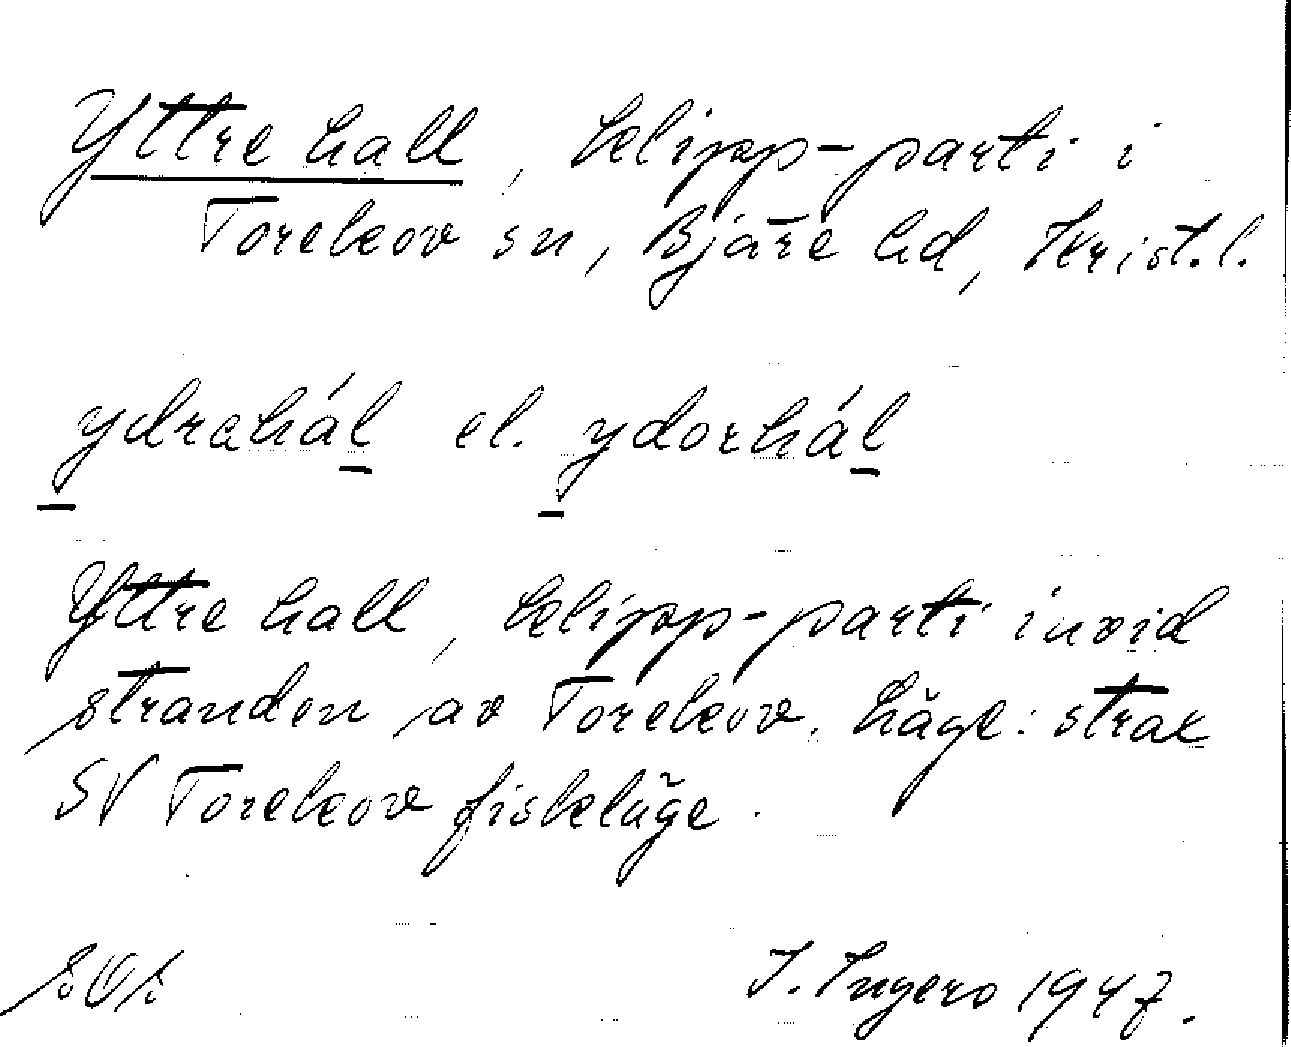 Yttre hall, klipp-parti i
Torekov sn, Bjäre hd, Krist.l.
ydrahál el. ydorhál
Yttre hall, klipp-parti invid
stranden av Torekov. Läge: strax
SV Torekov fiskeläge.
I. Ingers 1947.